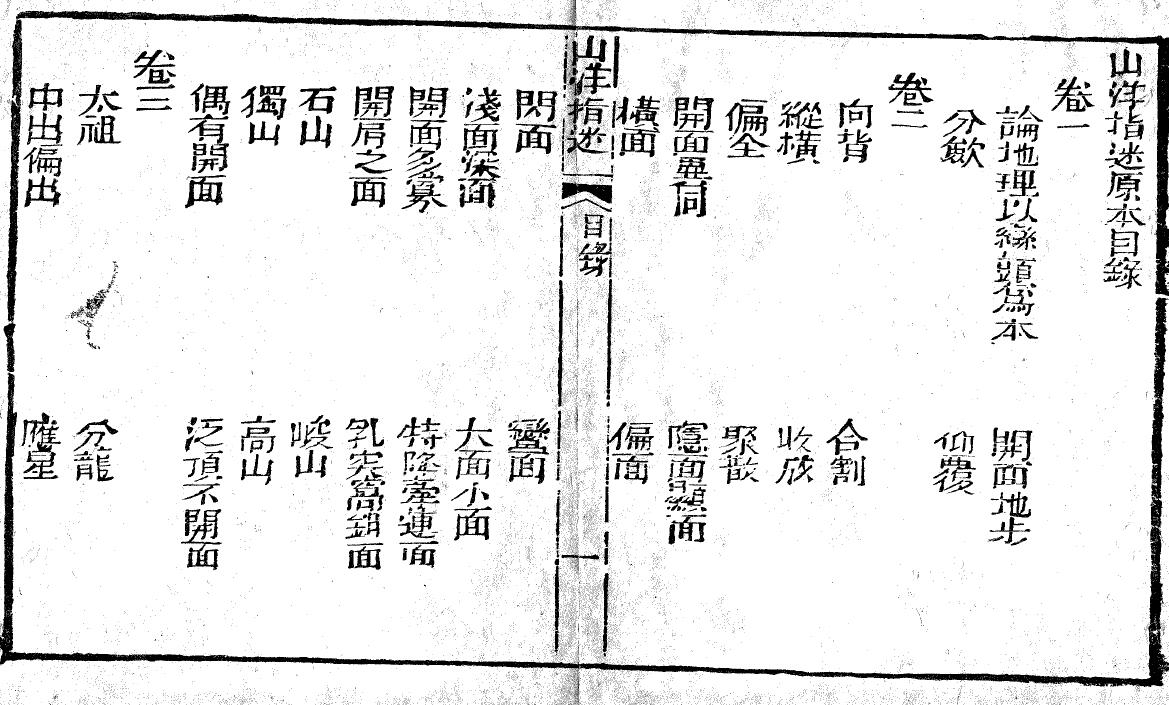 山洋指迷原本目錄
卷一
論地理以巒頭為本　開面地步
分斂　仰覆
卷二
向背　合割
縱橫　收放
偏全　聚散
開面異同　隱面顯面
橫面　偏面
山洋指迷　目錄　一
閃面　蠻面
淺面深面　大面小面
開面多寡　特降牽連面
開肩之面　乳突窩鉗面
石山　峻山
獨山　高山
偶有開面　泛頂不開面
卷三
太祖　分龍
中出偏出　應星